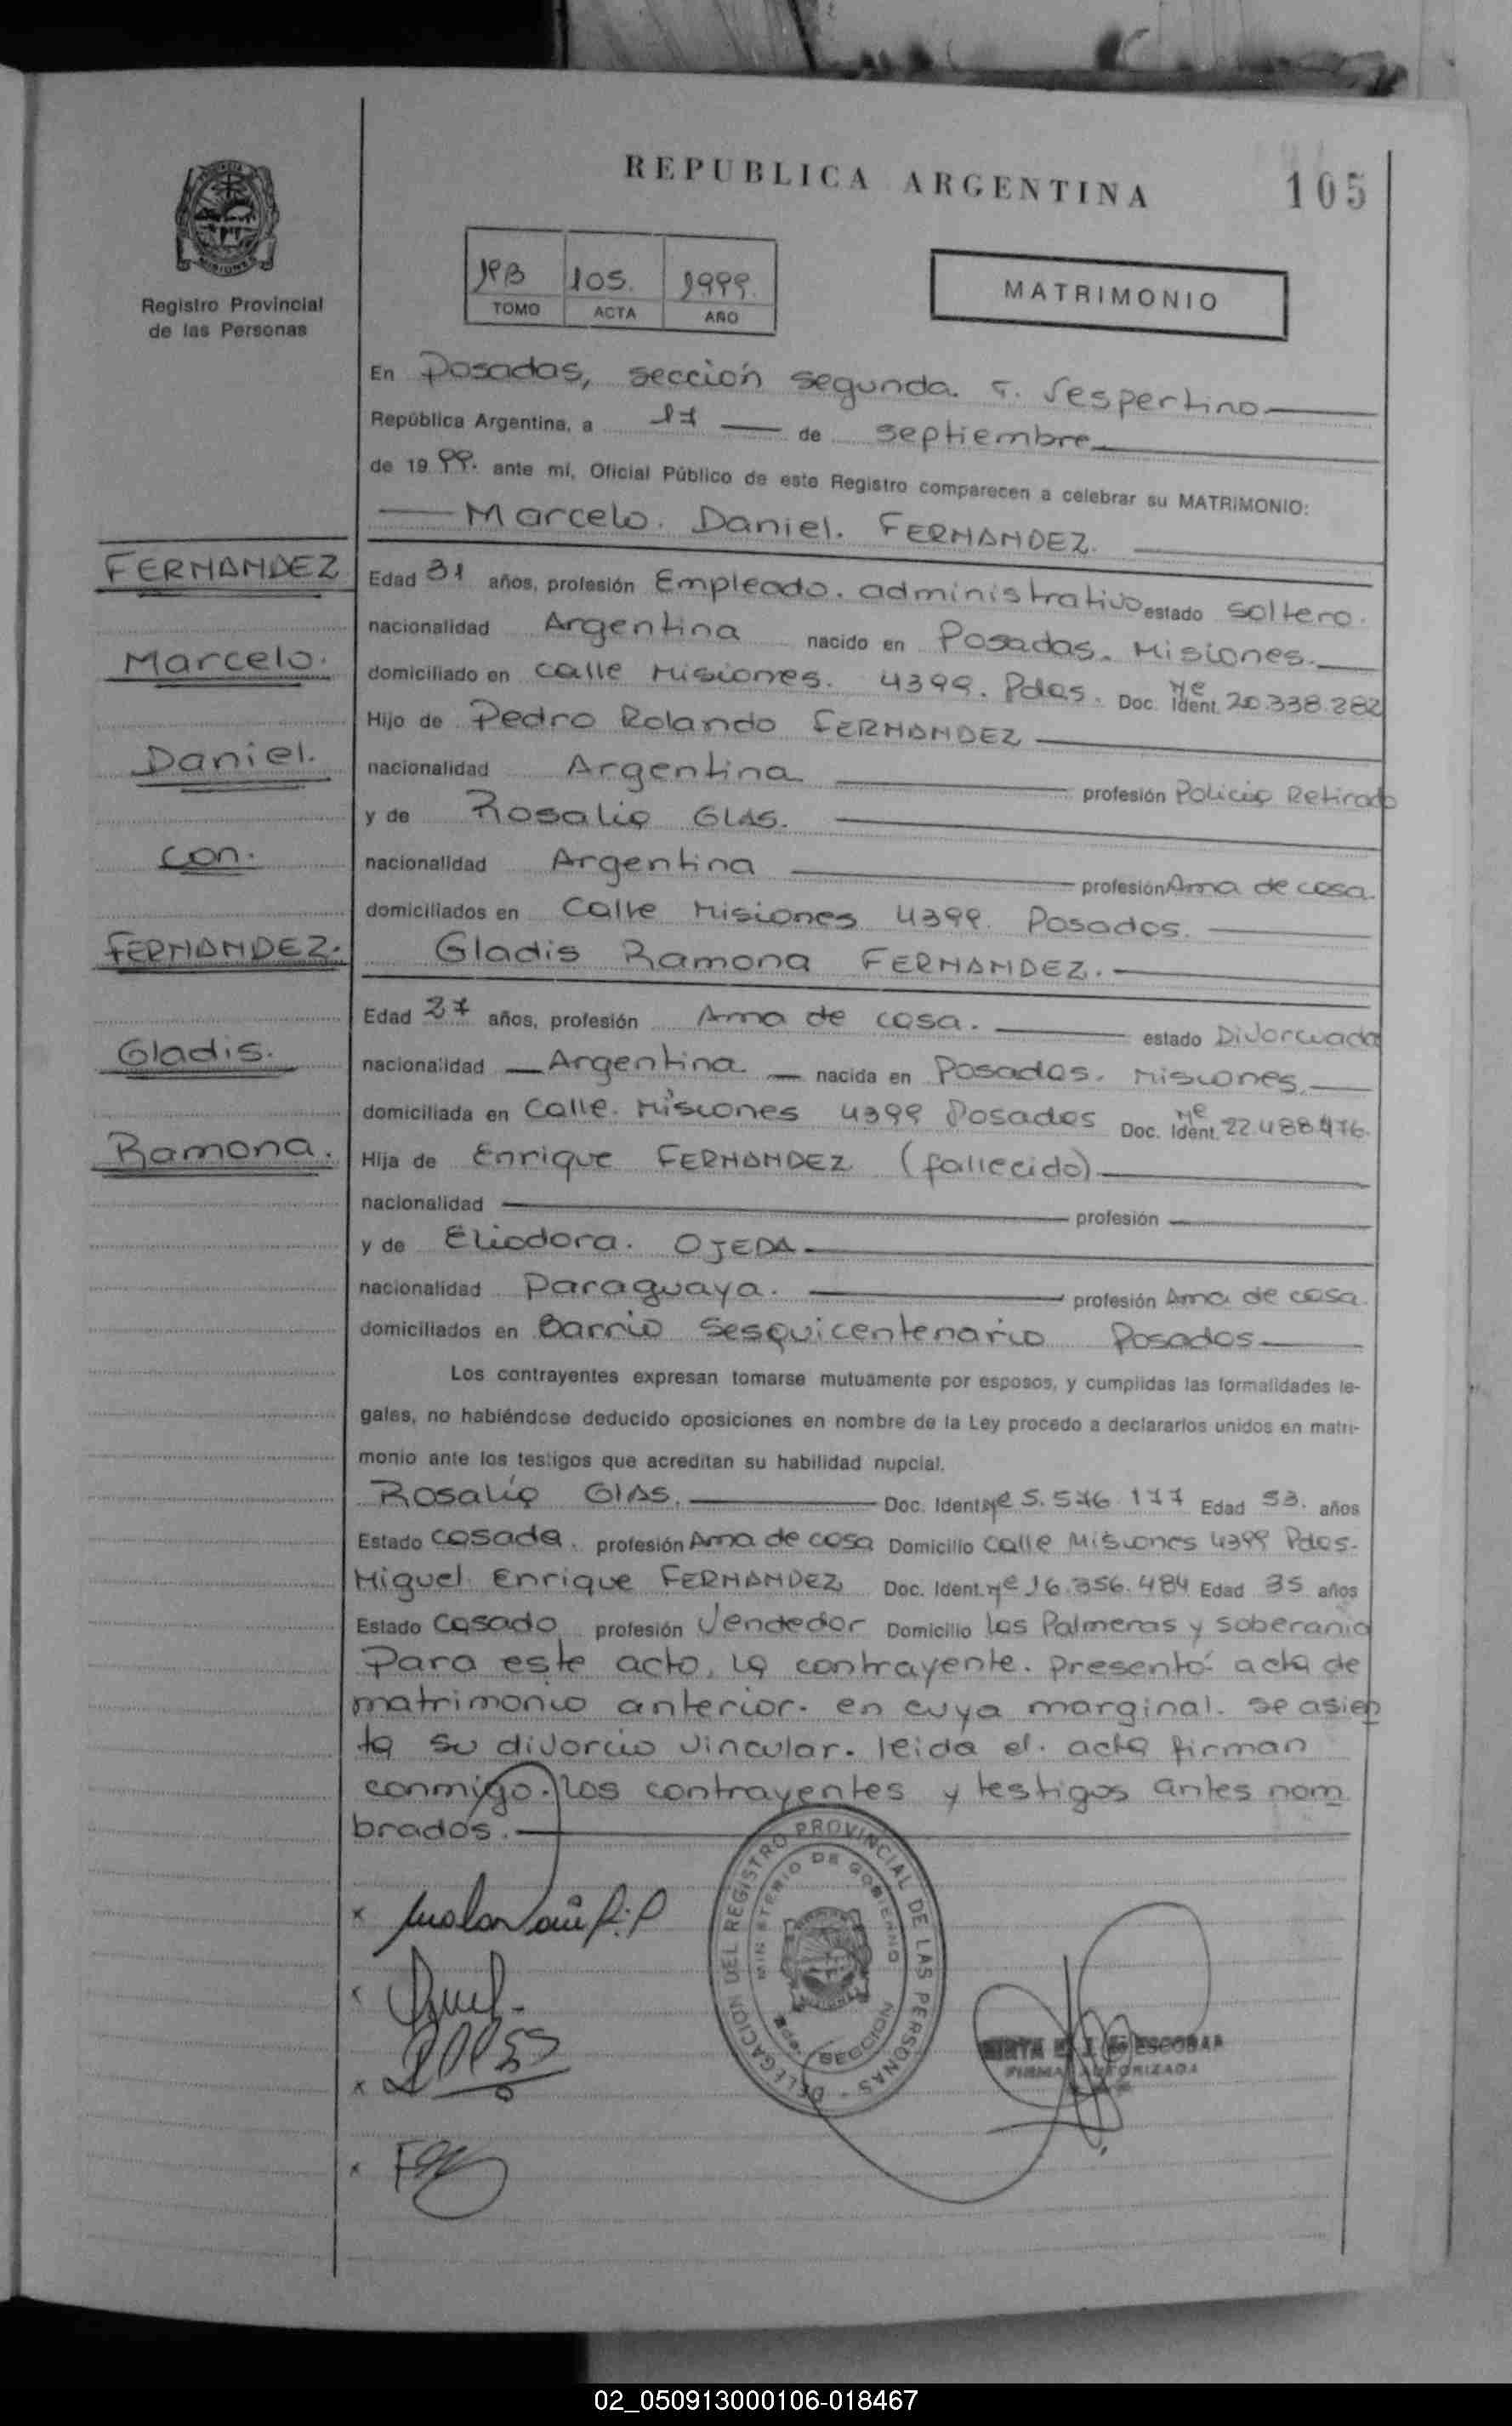 REPUBLICA ARGENTINA
105
Registro Provincial
de las Personas
105. 1999.
TOMO ACTA AÑO
MATRIMONIO
En Posadas, sección segunda. T. Vespertino
República Argentina, a 17 de septiembre
de 1999. ante mí, Oficial Público de este Registro comparecen a celebrar su MATRIMONIO:
Marcelo. Daniel. FERNANDEZ.
FERNANDEZ
Marcelo.
Daniel.
con.
FERNANDEZ.
Gladis.
Ramona.
Edad 31 años, profesión Empleado. administrativo estado soltero.
nacionalidad Argentina nacido en Posadas. Misiones.
domiciliado en calle Misiones. 4399. Pdas. Doc. Ident. Nº 20.338.282
Hijo de Pedro Rolando FERNANDEZ
nacionalidad Argentina profesión Policía Retirado
y de Rosalia GLAS.
nacionalidad Argentina profesión Ama de casa.
domiciliados en Calle Misiones 4399. Posadas.
Gladis Ramona FERNANDEZ.
Edad 27 años, profesión Ama de casa. estado Divorciada
nacionalidad Argentina. nacida en Posadas. Misiones.
domiciliada en Calle. Misiones 4399 Posadas Doc. Ident. Nº 22.488.476.
Hija de Enrique FERNANDEZ (fallecido)
nacionalidad profesión
y de Eliodora. OJEDA
nacionalidad Paraguaya. profesión Ama de casa.
domiciliados en Barrio Sesquicentenario Posadas
Los contrayentes expresan tomarse mutuamente por esposos, y cumplidas las formalidades le-
gales, no habiéndose deducido oposiciones en nombre de la Ley procedo a declararlos unidos en matri-
monio ante los testigos que acreditan su habilidad nupcial.
Rosalía GLAS. Doc. Ident. Nº 5.576.177 Edad 53. años
Estado casada. profesión Ama de casa Domicilio calle Misiones 4399 Pdas.
Miguel Enrique FERNANDEZ Doc. Ident. Nº 16.356.484 Edad 35 años
Estado casado profesión Vendedor Domicilio Las Palmeras y soberania
Para este acto, la contrayente. presentó acta de
matrimonio anterior. en cuya marginal. se asien
ta su divorcio vincular. leida el. acta firman
conmigo. los contrayentes y testigos antes nom
brados.
DELEGACION DEL REGISTRO PROVINCIAL DE LAS PERSONAS
MINISTERIO DE GOBIERNO
SECCION
ESCOBAR
FIRMA AUTORIZADA
02_050913000106-018467